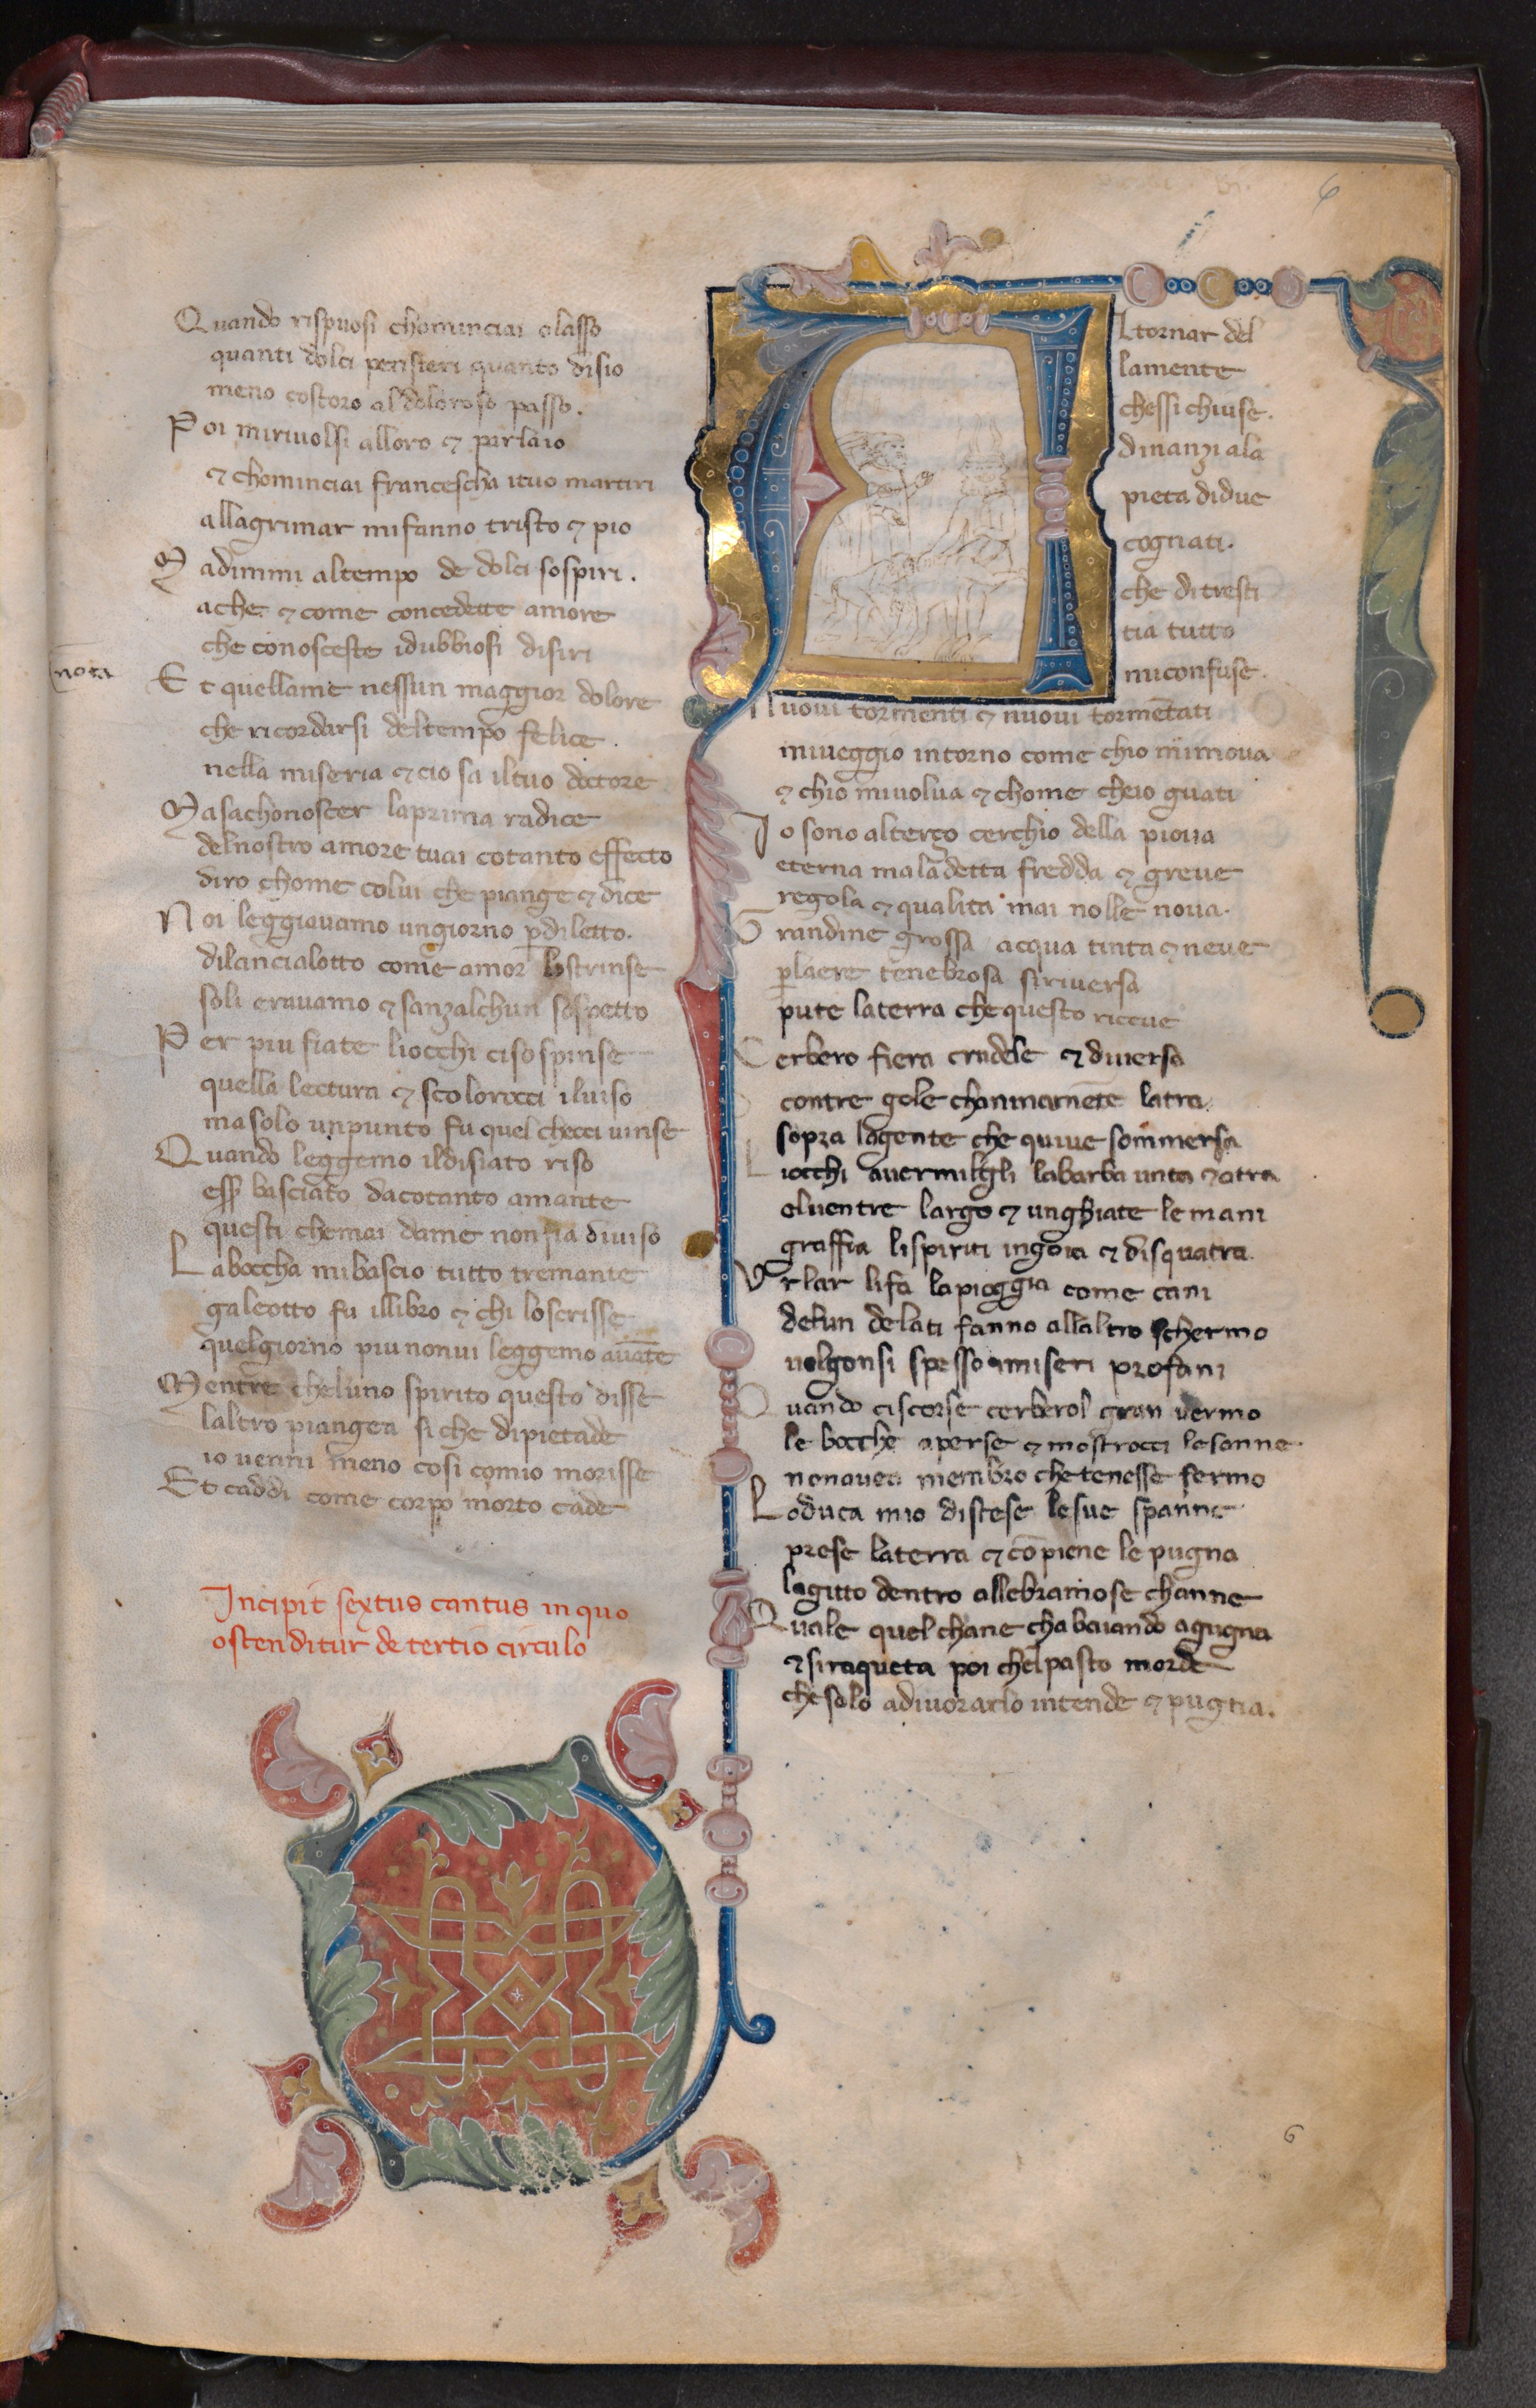 6
Quando rispuosi chominciai olasso
quanti dolci pensieri quanto disio
meno costoro aldoloroso passo.
Poi mirivolsi alloro ⁊ parlaio
⁊ chominciai francescha ituo martiri
allagrimar mifanno tristo ⁊ pio
Madimmi altempo de dolci sospiri.
ache ⁊ come concedette amore
che conosceste idubbiosi disiri
nota
Et quellame nessun maggior dolore
che ricordarsi deltempo felice.
nella miseria ⁊ cio sa iltuo doctore
Masachonoscer laprima radice
delnostro amore tuai cotanto effecto
diro chome colui che piange ⁊ dice
Noi leggiavamo ungiorno p̲diletto.
dilancialotto come amor lostrinse
soli eravamo ⁊ sanzalchun sospetto
Per piu fiate liocchi cisospinse
quella lectura ⁊ scolorocci iluiso
masolo unpunto fu quel checci uinse
Quando leggemo ildisiato riso
esser basciato dacotanto amante
questi chemai dame non fia diuiso
Laboccha mibascio tutto tremante
galeotto fu illibro ⁊ chi loscrisse
quelgiorno piu nonui leggemo auāte
Mentre cheluno spirito questo disse
laltro piangea si che dipietade
io uenni meno cosi comio morisse
Et caddi come corpo morto cade
Incipit sextus cantus in quo
ostenditur de tertio circulo
Altornar del
lamente
chessi chiuse.
dinanzi ala
pieta didue
cognati.
che ditresti
tia tutto
miconfuse.
Nuovi tormenti ⁊ nuovi tormētati
miueggio intorno come chio mimoua
⁊ chio miuolua ⁊ chome cheio guati
Io sono alterço cerchio della pioua
eterna maladetta fredda ⁊ greue
regola ⁊ qualita mai nolle noua.
Grandine grossa acqua tinta ⁊ neue
p̲laere tenebrosa siriuersa
pute laterra che questo riceue
Cerbero fiera crudele ⁊ diuersa
contre gole chaninamēte latra
sopra lagente che quiue sommersa
Liocchi auermilgli labarba unta ⁊ atra
eluentre largo ⁊ unghiate le mani
graffia lispiriti ingoia ⁊ disquatra
Vrlar lifa lapioggia come cani
delun delati fanno allaltro schermo
uolgonsi spesso imiseri profani
Quando ciscorse cerberol gran vermo
le bocche aperse ⁊ mostrocci lesanne
nonauea membro che tenesse fermo
Loduca mio distese lesue spanne
prese laterra ⁊ cōpiene le pugna
lagitto dentro allebramose channe
Quale quel chane cha baiando agugna
⁊ siraqueta poi chelpasto morde
che solo adiuorarlo intende ⁊ pugna.
6